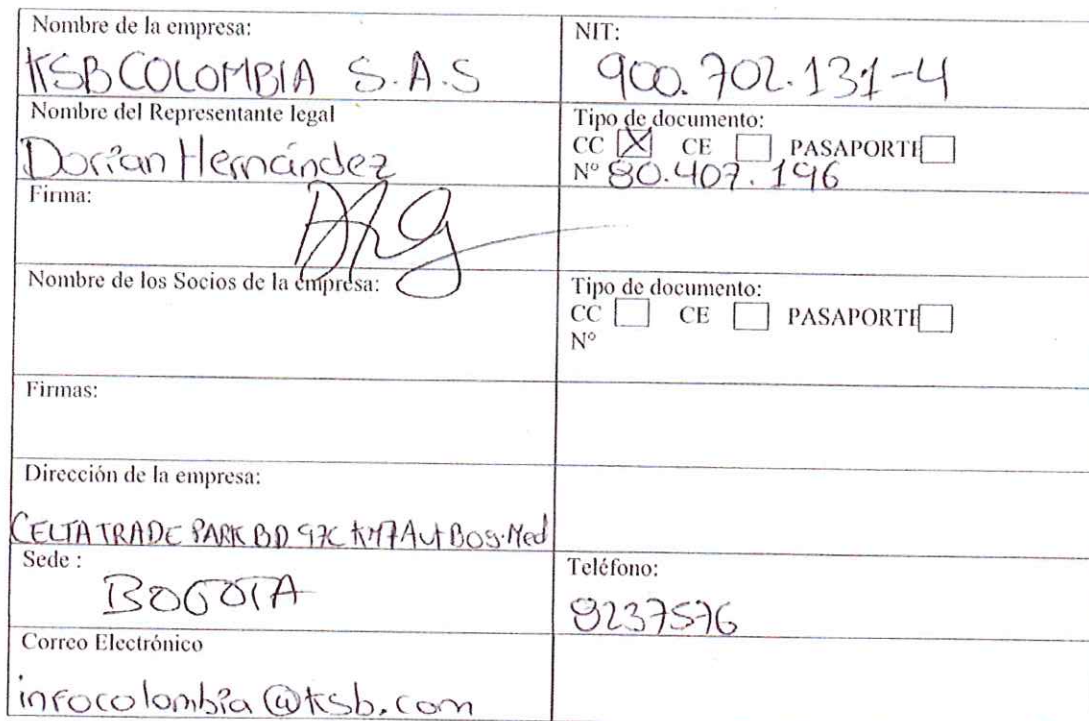 Nombre de la empresa:
KSB COLOMBIA S.A.S
NIT:
900.702.131-4
Nombre del Representante legal
Dorian Hernández
Tipo de documento:
CC [X] CE PASAPORTE
Nº 80.407.196
Firma:
Nombre de los Socios de la empresa:
Tipo de documento:
CC CE PASAPORTE
Nº
Firmas:
Dirección de la empresa:
CELTA TRADE PARK BD 97C KM7 Aut Bog-Med
Sede :
BOGOTA
Teléfono:
8237576
Correo Electrónico
infocolombia@ksb.com